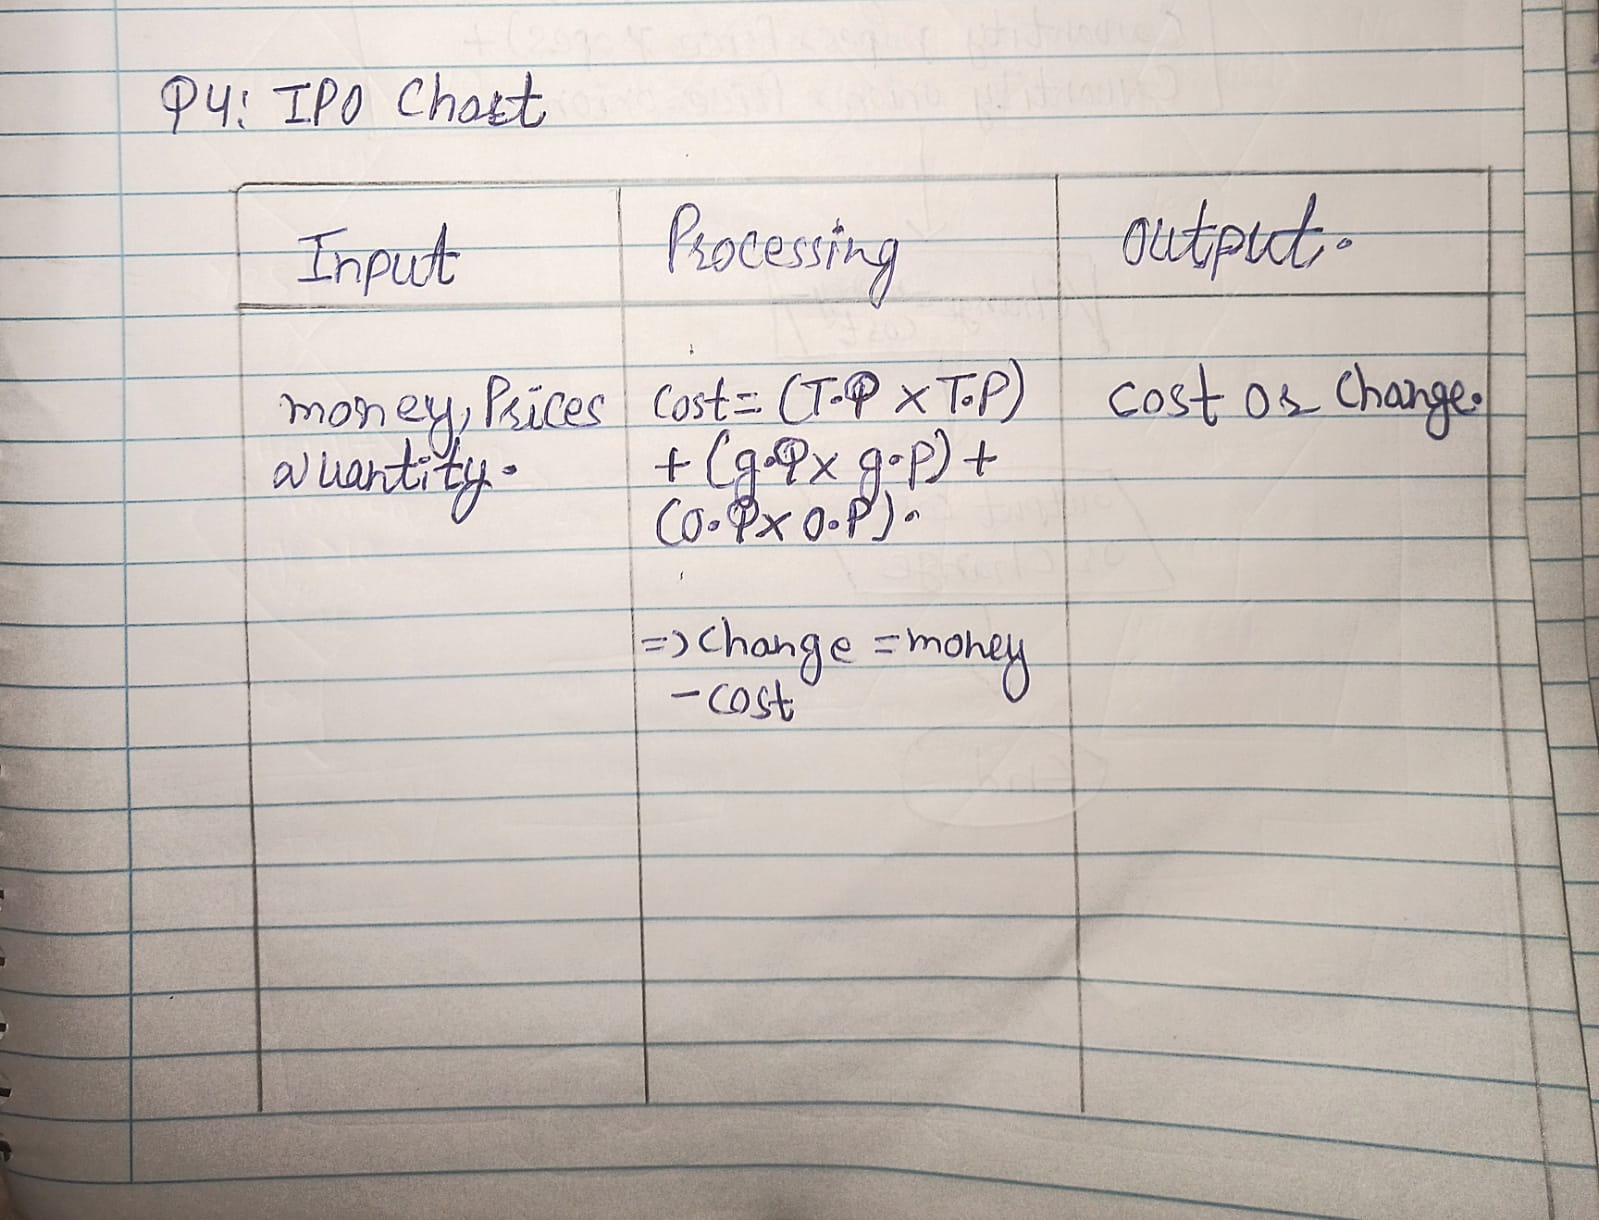 Q4: IPO Chart
Input
Processing
output.
money, Prices
quantity.
Cost= (T.Q × T.P)
+ (g.Q× g.p) +
(O.Q× O.P).
=> Change = money
- cost
cost or Change.